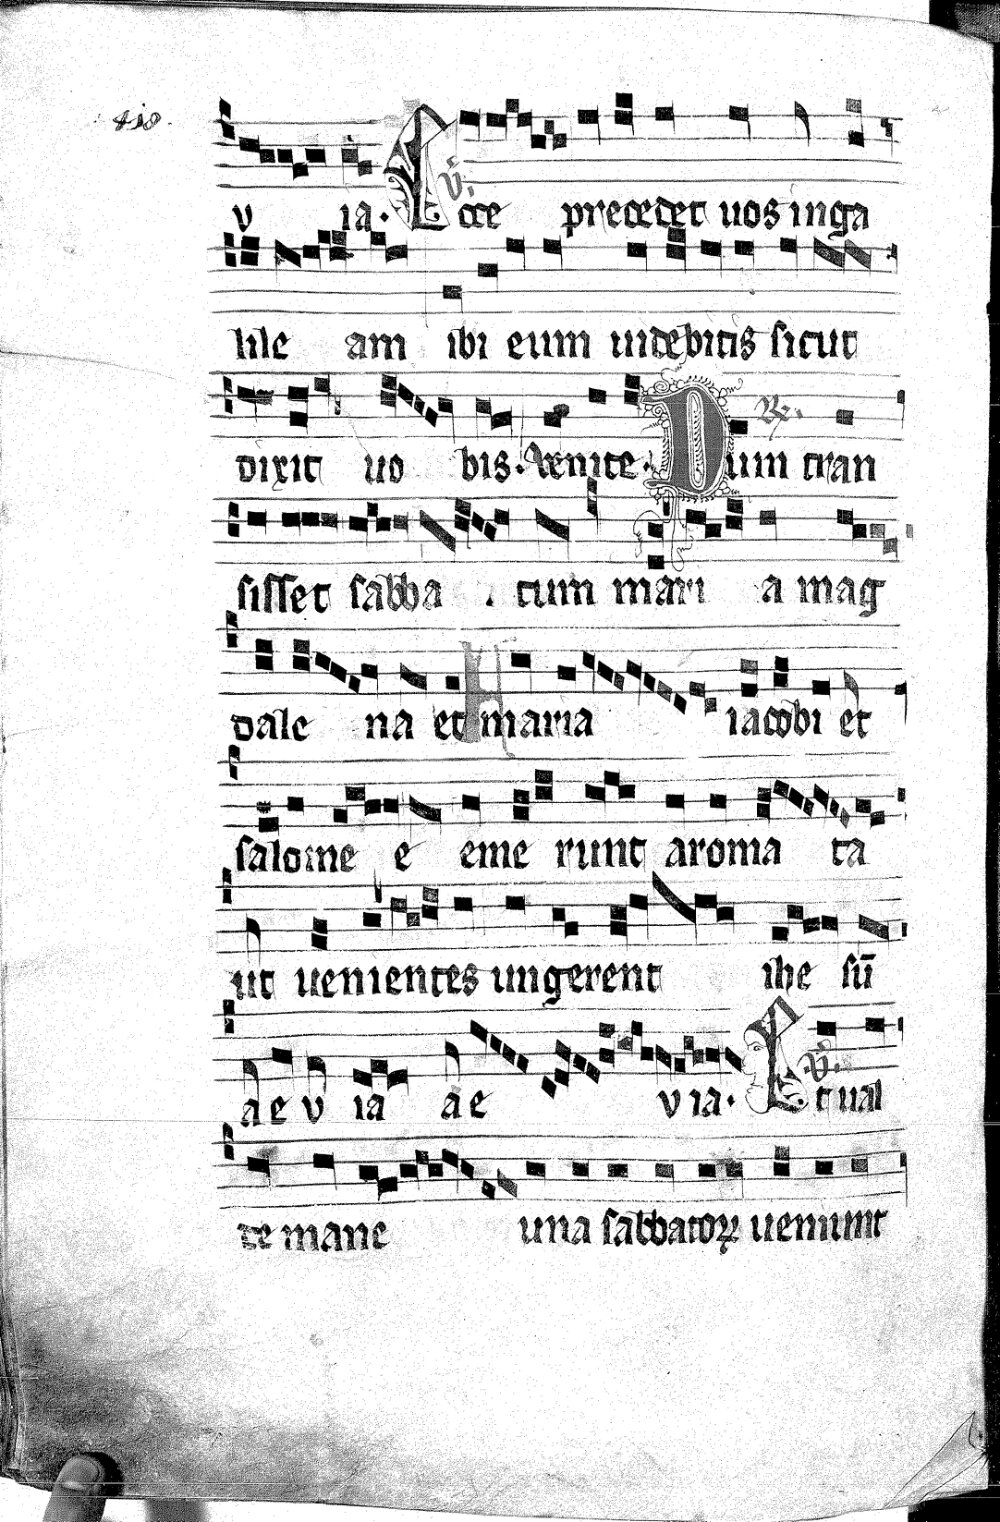 v ia. V. Ecce precedet uos in ga
lile am ibi eum uidebitis sicut
dixit uo bis. Venite. R. Dum tran
sisset sabba tum mari a mag
dale na et maria iacobi et
salome e eme runt aroma ta
ut uenientes ungerent ihe sū
a e v ia a e v ia. V. Et ual
de mane una sabbatoꝝ ueniunt